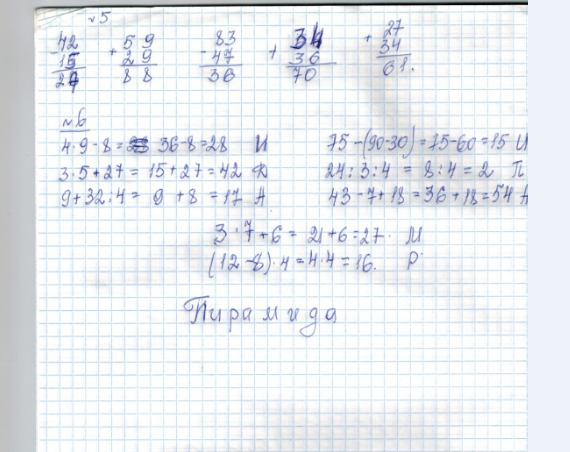 №5
42 59 83 34 27
- 15 + 29 - 47 + 36 + 34
27 88 36 70 61.
№6
4·9-8= 36-8=28 И 75-(90-30)=75-60=15 И
3·5+27= 15+27=42 Д 24:3:4= 8:4=2 П
9+32:4= 9+8=17 А 43-7+18=36+18=54 А
3·7+6= 21+6=27. М
(12-8)·4=4·4=16. Р
Пирамида